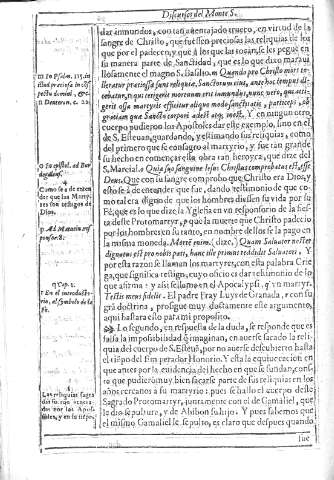 Discursos del Monte S.
dar inmundos, con tan auentajado trueco, en virtud de la
sangre de Christo, que fuessen preciosas las reliquias de los
que por el padecen, y que à los que las tocan, se les pegue en
su manera parte de Sanctidad, que es lo que dize maraui
llosamente el magno S. Basilio. m Quando pro Christo mors to-
leratur preciosa sunt reliquiæ, Sanctorum eius,
ante hoc tempus di-
gratiam que Sancto corpori adest atq; inest. Y en ningun otro
cuerpo pudieron los Apostoles dar este exemplo, sino en el
de S. Esteuan, guardando, y estimando sus reliquias, como
del primero que se consagro al martyrio, y fue tan grande
su hecho en començar esta obra tan heroyca, que dize del
S. Marcial. o Quia suo sanguine Iesus Christus comprobatus est, esse
Deus. Que con su sangre comprobo que Christo era Dios, y
esto se à de entender que fue, dando testimonio de que co-
mo tal era digno de que los hombres diessen su vida por su
Fè, que es lo que dize la Yglesia en vn responsorio de la fies-
ta deste Protomartyr, p que la muerte que Christo padecio
por los hombres en la cruz, en nombre dellos se la pago en
la misma moneda. Mortem enim, (dize,) Quam Saluator noster
dignatus est pro nobis pati, hanc ille primus reddidit Saluatori. Y
por esta razon se llaman los martyres, con esta palabra Grie
ga, que significa testigo, cuyo oficio es dar testimonio de lo
que afirma: y assi se llamo en el Apocalypsi, q vn martyr.
Testis meus fidelis. El padre Fray Luys de Granada, r con su
grã doctrina, prosigue muy doctamente este argumento,
aqui bastara esto para mi proposito.
Lo segundo, en respuesta de la duda, se responde que es
falsa la imposibilidad q̃ imaginan, en auerse sacado la reli-
quia del cuerpo de S. Esteuã, por no auerse descubierto hasta
el tiẽpo del Emperador Honorio. Y esta la equiuocacion en
que antes por la euidencia del hecho en que se fundan, cons-
ta que pudieron muy bien sacarse parte de sus reliquias en los
años cercanos à su martyrio: pues se hallo el cuerpo deste
Sagrado Protomartyr, juntamente con el de Gamaliel, que
le dio sepultura, y de Abibon su hijo. Y pues sabemos que
el mismo Gamaliel le sepulto, es claro que despues quando
fue
m In Psalm. 115. in
n Deuteron. c. 22.
o In epistol. ad Bur
degalens.
Como se à de enten
der que los Marty-
res son testigos de
Dios.
p Ad Matutin. res
ponsor. 8.
q Cap. 2.
r En el introducto-
rio, al symbolo de la
Fè.
Las reliquias sagra
dos por los Apos-